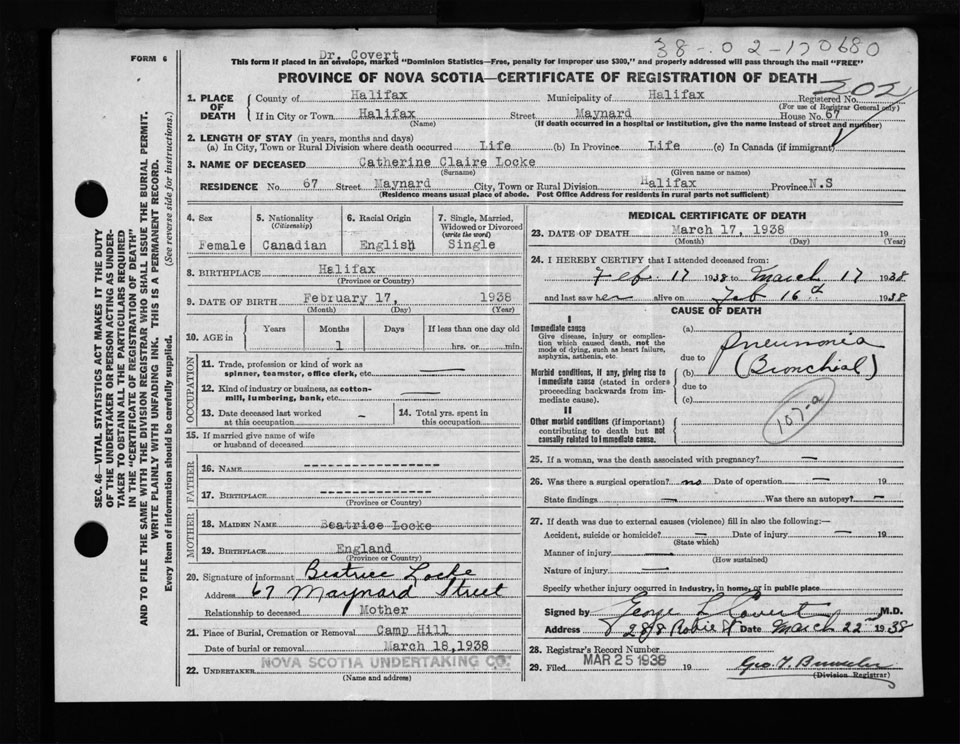 FORM 6
Dr. Covert
38-02-170680
This form if placed in an envelope, marked "Dominion Statistics—Free, penalty for improper use $300," and properly addressed will pass through the mail "FREE"
PROVINCE OF NOVA SCOTIA—CERTIFICATE OF REGISTRATION OF DEATH
202
1. PLACE OF DEATH
County of Halifax Municipality of Halifax Registered No.
(For use of Registrar General only)
If in City or Town Halifax Street Maynard House No. 67
(Name) (If death occurred in a hospital or institution, give the name instead of street and number)
2. LENGTH OF STAY (in years, months and days)
(a) In City, Town or Rural Division where death occurred Life (b) In Province Life (c) In Canada (if immigrant)
3. NAME OF DECEASED Catherine Claire Locke
(Surname) (Given name or names)
RESIDENCE No. 67 Street Maynard City, Town or Rural Division Halifax Province N.S
(Residence means usual place of abode. Post Office Address for residents in rural parts not sufficient)
4. Sex
Female
5. Nationality
(Citizenship)
Canadian
6. Racial Origin
English
7. Single, Married, Widowed or Divorced
(write the word)
Single
8. BIRTHPLACE Halifax
(Province or Country)
9. DATE OF BIRTH February 17, 1938
(Month) (Day) (Year)
10. AGE in
Years Months Days If less than one day old
1 hrs. or min.
OCCUPATION
11. Trade, profession or kind of work as
spinner, teamster, office clerk, etc. —
12. Kind of industry or business, as cotton-
mill, lumbering, bank, etc. —
13. Date deceased last worked
at this occupation -
14. Total yrs. spent in
this occupation
15. If married give name of wife
or husband of deceased
FATHER
16. NAME ----------------
17. BIRTHPLACE --------------
MOTHER
18. MAIDEN NAME Beatrice Locke
19. BIRTHPLACE England
(Province or Country)
20. Signature of informant Beatrice Locke
Address 67 Maynard Street
Relationship to deceased Mother
21. Place of Burial, Cremation or Removal Camp Hill
Date of burial or removal March 18,1938
22. UNDERTAKER NOVA SCOTIA UNDERTAKING CO.
(Name and address)
MEDICAL CERTIFICATE OF DEATH
23. DATE OF DEATH March 17, 1938 19
(Month) (Day) (Year)
24. I HEREBY CERTIFY that I attended deceased from:
Feb. 17 1938 to March 17 1938
and last saw her alive on Feb 16th 1938
CAUSE OF DEATH
I
Immediate cause
Give disease, injury or complication which caused death, not the mode of dying, such as heart failure, asphyxia, asthenia, etc.
(a)
due to
Pneumonia
Morbid conditions, if any, giving rise to immediate cause (stated in order proceeding backwards from immediate cause).
(b) (Bronchial)
due to
(c)
II
Other morbid conditions (if important) contributing to death but not causally related to immediate cause.
107-a
25. If a woman, was the death associated with pregnancy? —
26. Was there a surgical operation? no Date of operation — 19
State findings — Was there an autopsy? —
27. If death was due to external causes (violence) fill in also the following:—
Accident, suicide or homicide? — Date of injury — 19
(State which)
Manner of injury —
(How sustained)
Nature of injury —
Specify whether injury occurred in industry, in home, or in public place
Signed by George L Covert M.D.
Address 288 Robie St Date March 22nd 1938
28. Registrar's Record Number
29. Filed MAR 25 1938 19
(Division Registrar)
SEC. 46—VITAL STATISTICS ACT MAKES IT THE DUTY
OF THE UNDERTAKER OR PERSON ACTING AS UNDER-
TAKER TO OBTAIN ALL THE PARTICULARS REQUIRED
IN THE "CERTIFICATE OF REGISTRATION OF DEATH"
AND TO FILE THE SAME WITH THE DIVISION REGISTRAR WHO SHALL ISSUE THE BURIAL PERMIT.
WRITE PLAINLY WITH UNFADING INK. THIS IS A PERMANENT RECORD.
Every item of information should be carefully supplied. (See reverse side for instructions.)